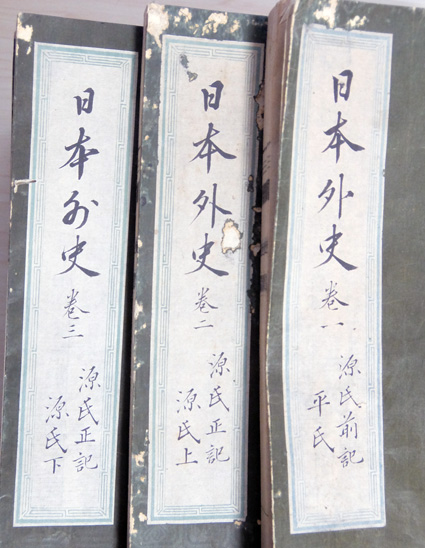 日本外史 卷一
源氏前記
平氏
日本外史 卷二
源氏正記
源氏上
日本外史 卷三
源氏正記
源氏下